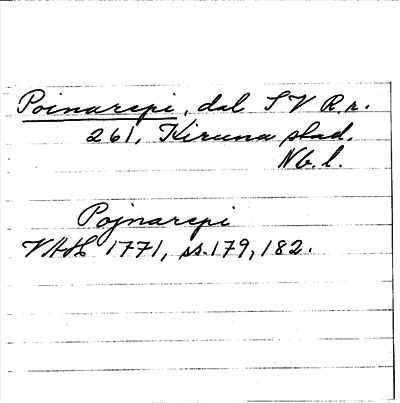 Poinarepi, dal S V R.r.
261, Kiruna stad.
Nb. l.
Pojnarepi
VAH 1771, ss. 179, 182.